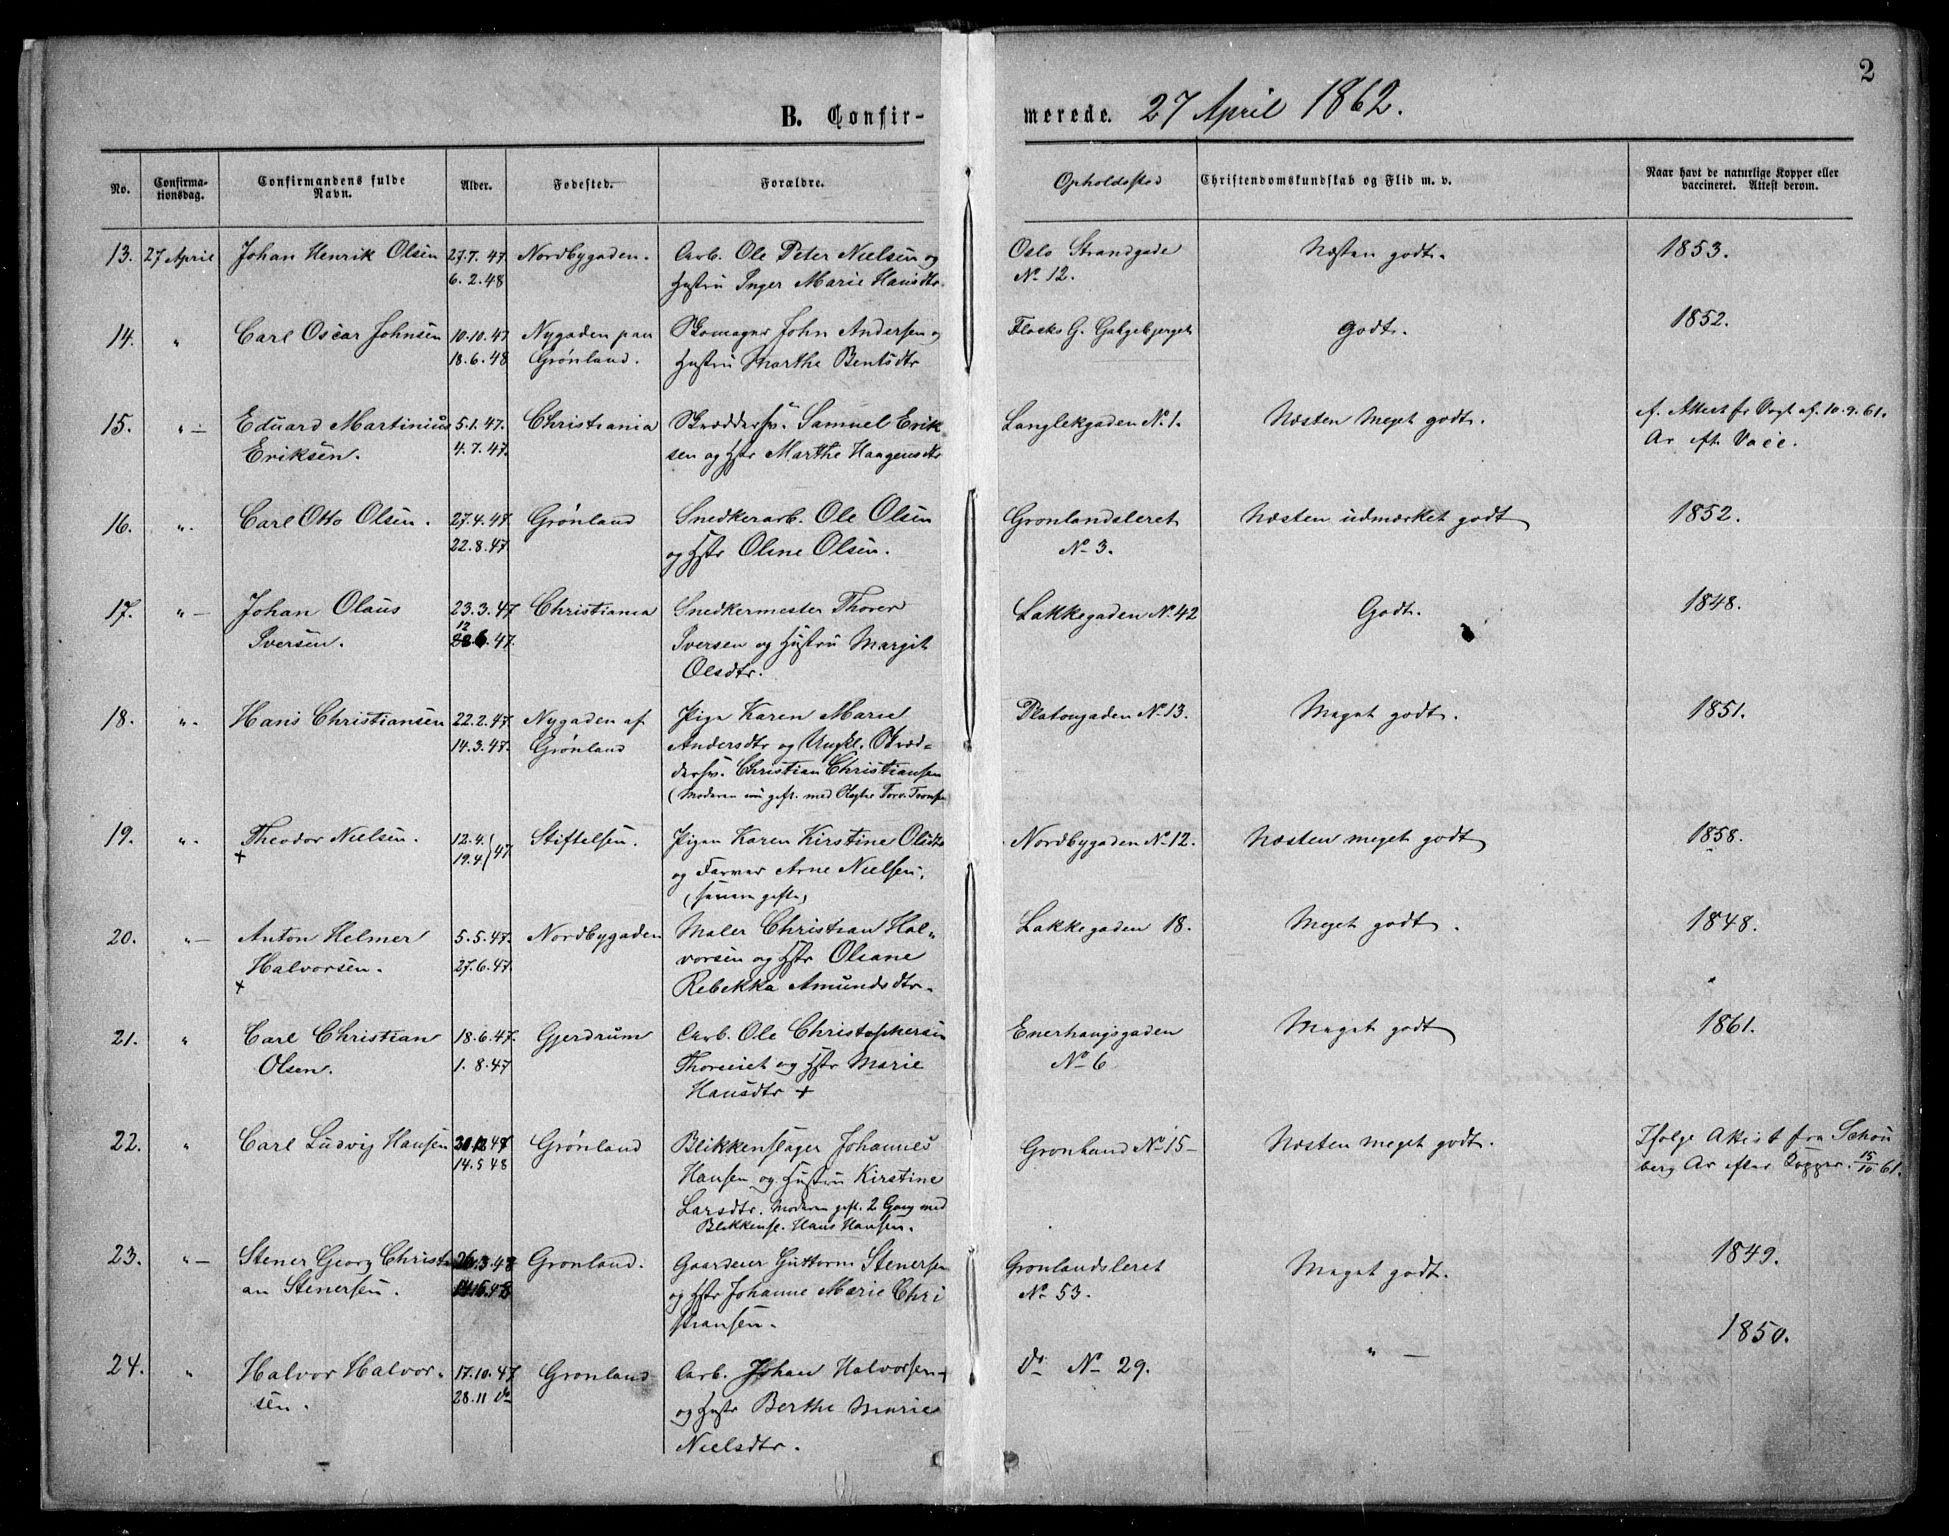 2
B. Confir-
merede. 27 April 1862.
No.
Confirma-
tionsdag.
Confirmandens fulde
Navn.
Alder.
Fødested.
Forældre.
Opholdssted
Christendomskundskab og Flid m. v.
Naar havt de naturlige Kopper eller
vaccineret. Attest derom.
13. 27 April Johan Henrik Olsen 27.7.47 Nordbygaden. Arb. Ole Peter Nielsen og Oslo Strandgade Næsten godt. 1853.
6.2.48 Hustru Inger Marie Hansdtr. No 12.
14. " Carl Oscar Johnsen 10.10.47 Nygaden paa Skomager John Andersen og Godt. 1852.
18.6.48 Grønland. Hustru Marthe Bentsdtr
15. " — Eduard Martinius 5.1.47. Christiania Skræddersv. Samuel Erik Langlekgaden No 1. Næsten Meget godt. Attest fr Vogt af 10.9.61.
Eriksen. 4.7.47. sen og Hstr Marthe Haagensdtr Ar eft. Vacc.
16. ". Carl Otto Olsen. 27.4.47 Grønland Snedkerarb. Ole Olsen Grønlandsleret Næsten udmærket godt 1852.
22.8.47 og Hstr Oline Olsen. No 3.
17. " — Johan Olaus 23.3.47 Christiania Snedkermester Thorer Lakkegaden No 42 Godt. 1848.
12
Iversen. 6.47. Iversen og Hustru Margit
Olsdtr.
18. ". Hans Christiansen 22.2.47 Nygaden af Pige Karen Marie Platougaden No 13. Meget godt. 1851.
14.3.47. Grønland Andersdtr og Ungkl. Skræd-
dersv. Christian Christiansen
(Moderen nu gift. med
19. ". Theodor Nielsen. 12.4. Stiftelsen. Pigen Karen Kirstine Olsdtr Nordbygaden No 12. Næsten meget godt 1858.
+ 19.4. 47 og Farver Arne Nielsen.
(senere gifte)
20. " — Anton Helmer 5.5.47. Nordbygaden Maler Christian Hal- Lakkegaden 18. Meget godt. 1848.
Halvorsen. 27.6.47. vorsen og Hstr Oleane
+ Rebekka Amundsdtr.
21. " Carl Christian 18.6.47. Gjerdrum Arb. Ole Christophersen Enerhaugsgaden Meget godt 1861.
Olsen. 1.8.47 og Hstr Marie No 6
Hansdtr +
22. " Carl Ludvig Hansen Grønland Blikkenslager Johannes Grønland No 15 - Næsten meget godt. Ifølge Attest fra Schøn
14.5 48 Hansen og Hustru Kirstine berg Ar efter Kopper. 15/10 61.
Larsdtr. Moderen gift. 2 Gang med
Blikkensl. Hans Hansen.
23. " — Stener Georg Christi 26.3.48 Grønland. Gaardeier Guttorm Stenersen Grønlandsleret Meget godt. 1849.
an Stenersen. og Hstr Johanne Marie Chri No 53.
stiansen.
24. " Halvor Halvor- 17.10.47 Grønland Arb. Johan Halvorsen do No 29. " — 1850.
sen. 28.11 do og Hustr Berthe Marie
Nielsdtr.